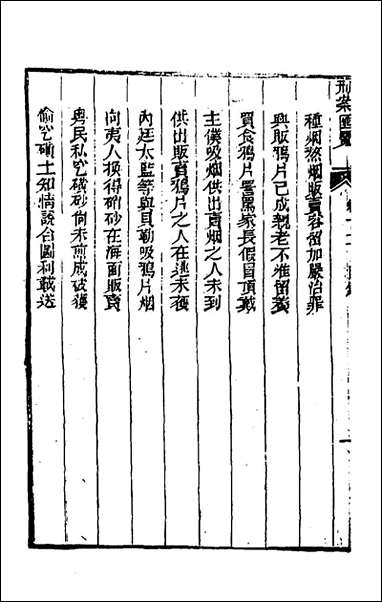 刑案匯覽
種烟熬烟販賣容留加嚴治罪
興販鴉片已成親老不准留養
買食鴉片詈罵家長假冒頂戴
主僕吸烟供出賣烟之人未到
供出販賣鴉片之人在逃未獲
內廷太監等與貝勒吸鴉片烟
向夷人換得硝砂在海面販賣
奥民私穵礦砂尚未煎成破獲
偷穵礦土知情說合圖利載送